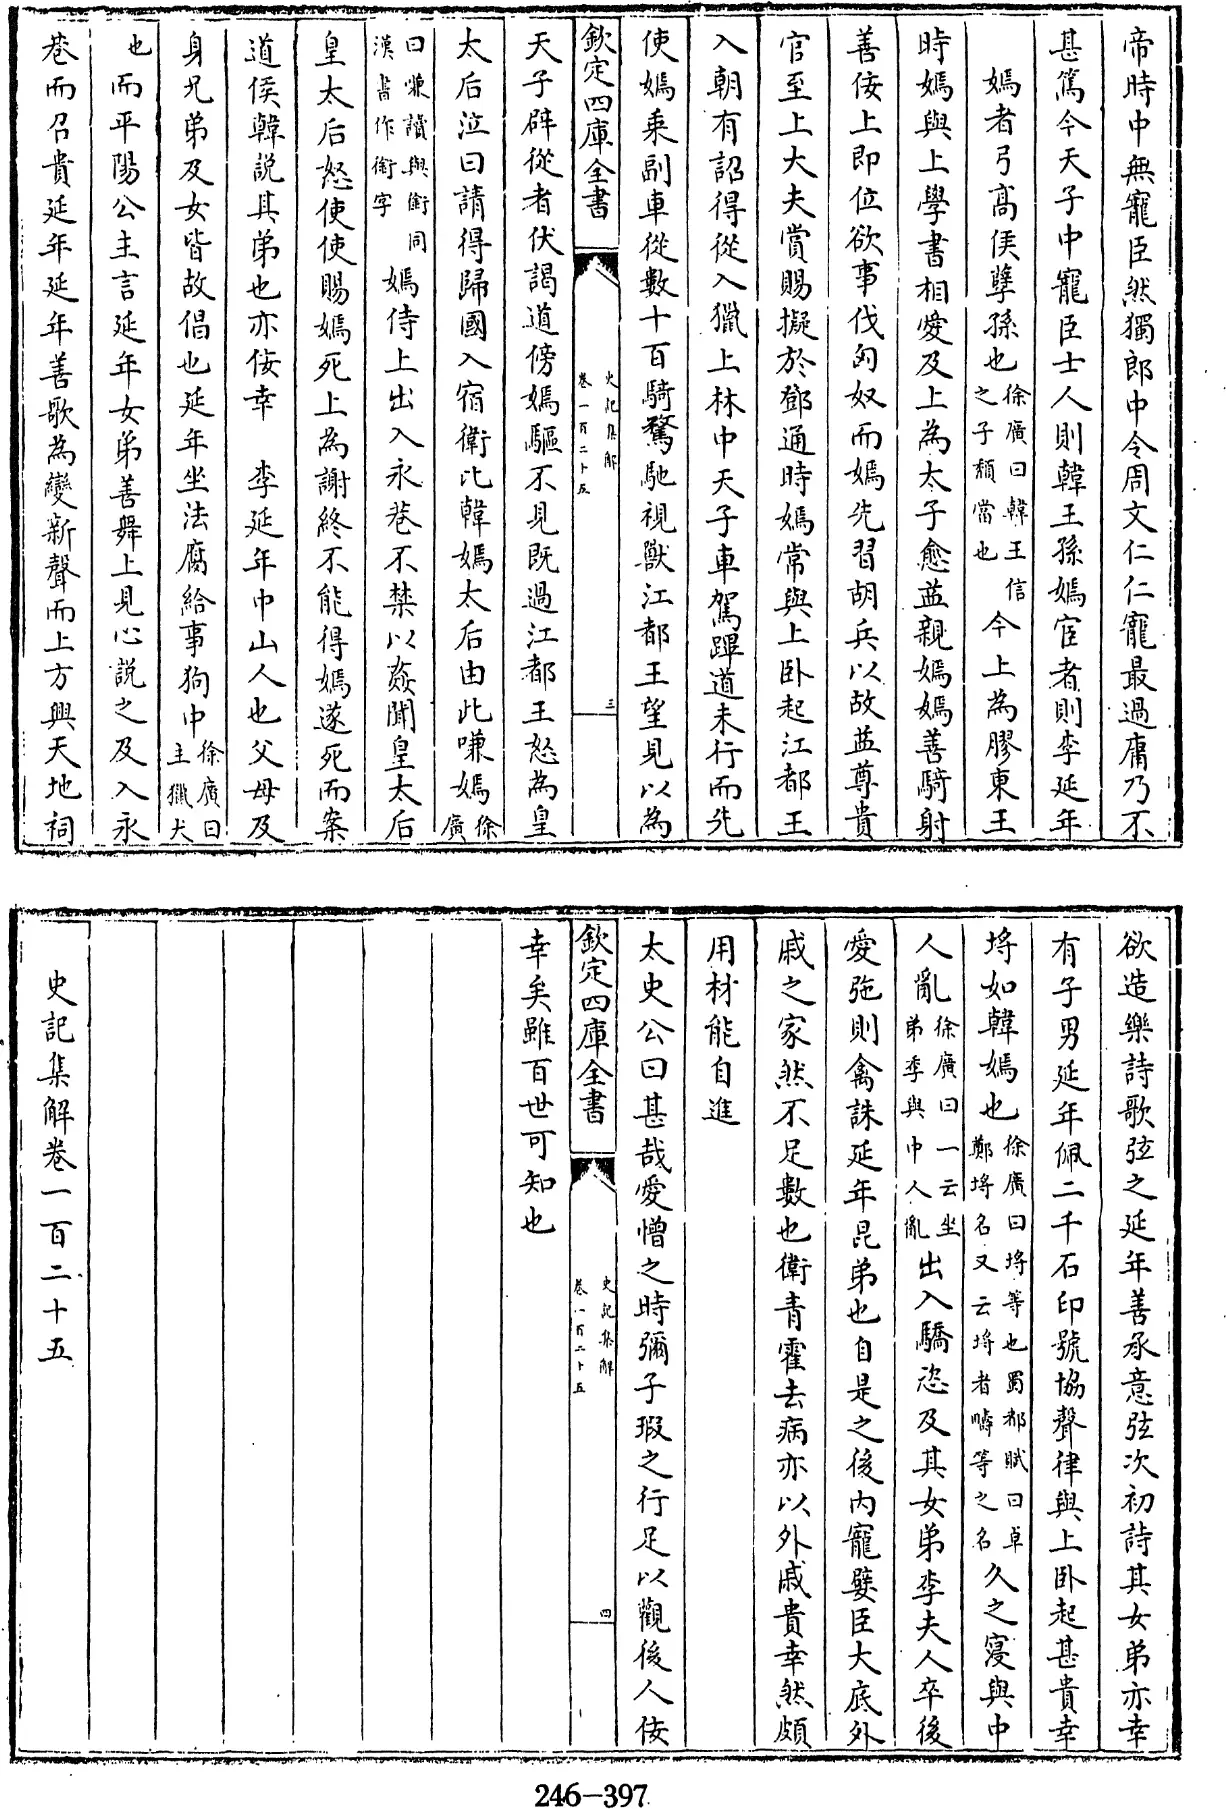 帝時中無寵臣然獨郎中令周文仁仁寵最過庸乃不
甚篤今天子中寵臣士人則韓王孫嫣宦者則李延年
嫣者弓高侯孽孫也徐廣曰韓王信之子頹當也今上為膠東王
時嫣與上學書相愛及上為太子愈益親嫣嫣善騎射
善佞上即位欲事伐匈奴而嫣先習胡兵以故益尊貴
官至上大夫賞賜擬於鄧通時嫣常與上卧起江都王
入朝有詔得從入獵上林中天子車駕蹕道未行而先
使嫣乘副車從數十百騎騖馳視獸江都王望見以為
欽定四庫全書
史記集解
卷一百二十五
三
天子辟從者伏謁道傍嫣驅不見既過江都王怒為皇
太后泣曰請得歸國入宿衛比韓嫣太后由此嗛嫣徐廣
曰嗛讀與銜同漢書作銜字嫣侍上出入永巷不禁以姦聞皇太后
皇太后怒使使賜嫣死上為謝終不能得嫣遂死而案
道侯韓説其弟也亦佞幸 李延年中山人也父母及
身兄弟及女皆故倡也延年坐法腐給事狗中徐廣曰主獵犬
也而平陽公主言延年女弟善舞上見心説之及入永
巷而召貴延年延年善歌為變新聲而上方興天地祠
欲造樂詩歌弦之延年善承意弦次初詩其女弟亦幸
有子男延年佩二千石印號協聲律與上卧起甚貴幸
埒如韓嫣也徐廣曰埒等也蜀都賦曰卓鄭埒名又云埒者疇等之名久之寖與中
人亂徐廣曰一云坐弟季與中人亂出入驕恣及其女弟李夫人卒後
愛弛則禽誅延年昆弟也自是之後内寵嬖臣大底外
戚之家然不足數也衛青霍去病亦以外戚貴幸然頗
用材能自進
太史公曰甚哉愛憎之時彌子瑕之行足以觀後人佞
欽定四庫全書
史記集解
卷一百二十五
四
幸矣雖百世可知也
史記集解卷一百二十五
246-397